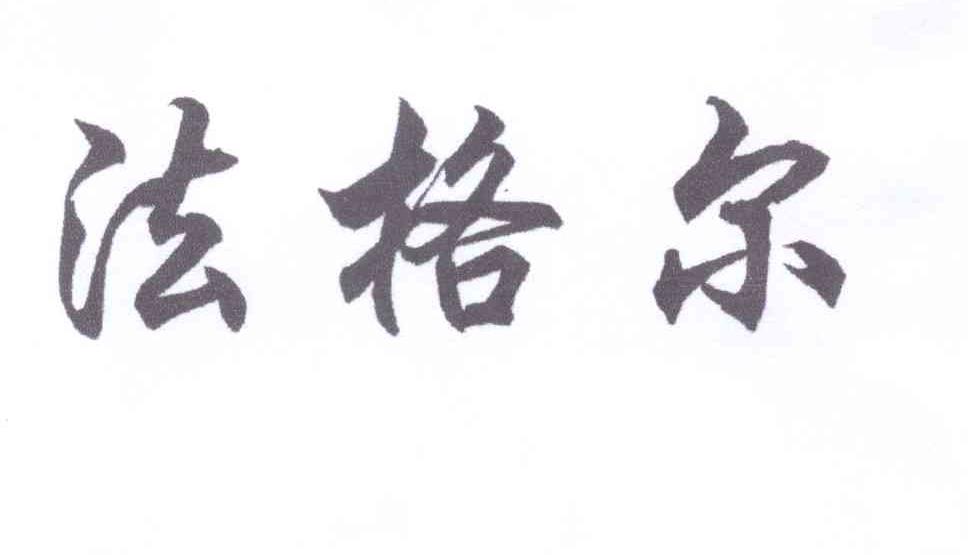 法格尔